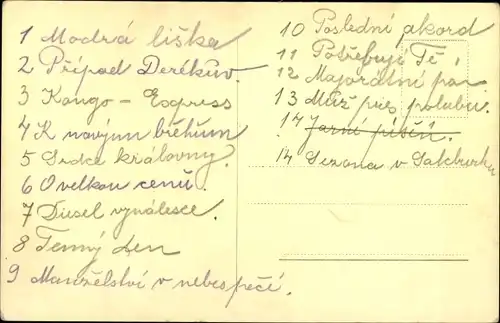 1 Modrá liška
2 Případ Derékův.
3 Kongo - Express
4 K novým břehům
5 Srdce královny.
6 O velkou cenu.
7 Diesel vynálezce.
8 Temný den
9 Manželství v nebezpečí.
10 Poslední akord
11 Potřebuji Tě,
12 Majorátní pan.
13 Muž přes palubu.
14 Jarní píseň.
14 Sezona v Salcburku